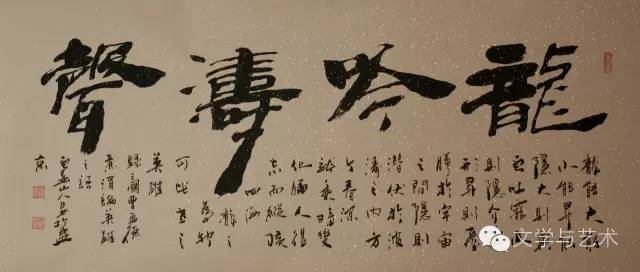 龍吟濤聲
龍能大能
小能昇能
隱大則興
雲吐霧小
則隱介藏
形昇則飛
騰於宇宙
之間隱則
潛伏於波
濤之內方
今春深
龍乘時變
化猶人得
志而縱橫
四海
龍之
為物
可比世之
英雄
錄三國曹孟德
煮酒論英雄
之語
山人書於盛
京
文学与艺术